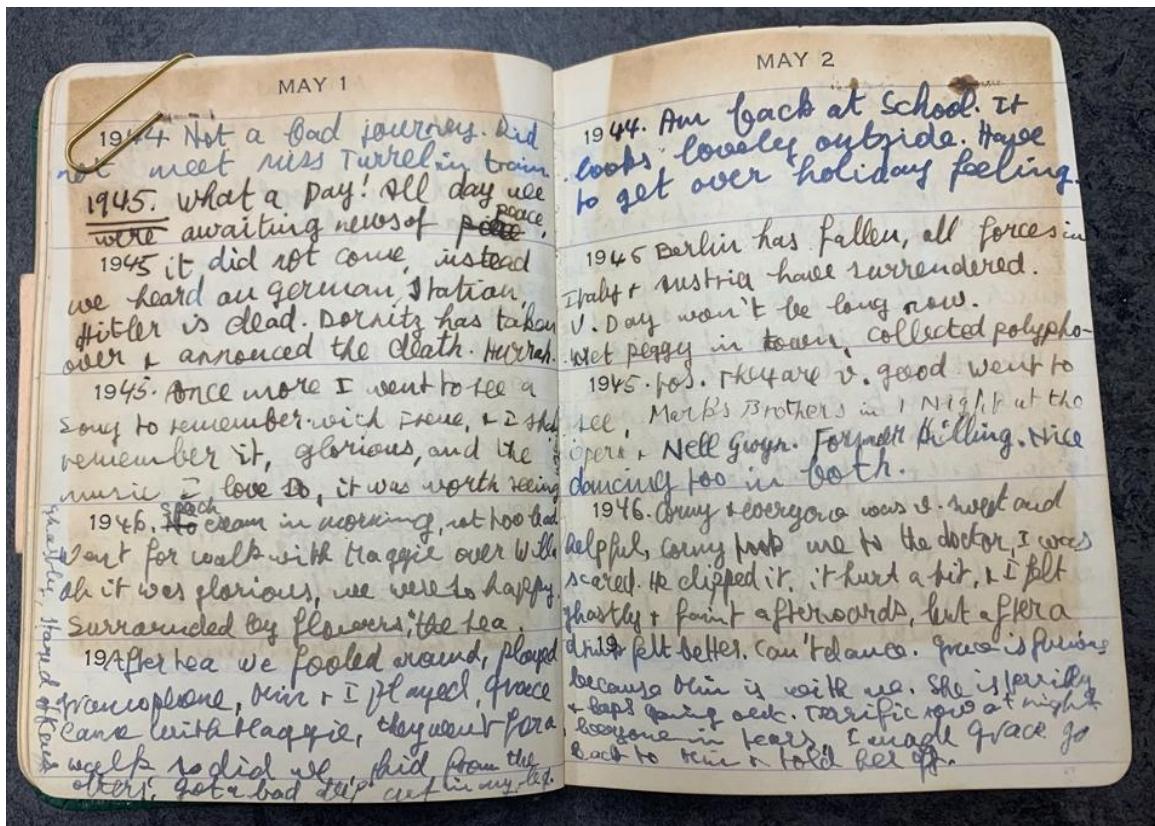 MAY 1
1944. Not a bad journey. Did
not meet Miss Turrel in train
1945. What a Day! All day we
were awaiting news of peace,
1945 it did not come, instead
we heard on German Station,
Hitler is dead. Dornitz has taken
over & announced the death. Hurrah.
1945. Once more I went to see a
Song to remember with Irene, & I shall
remember it, glorious, and the
music I love so, it was worth seeing
1946. Speech exam in morning, not too bad
Went for walk with Maggie over
oh it was glorious, we were so happy,
Surrounded by flowers, & the sea.
19 After tea we fooled around, played
gramophone, & I played, Grace
came with Maggie, they went for a
walk so did we, hid from the
others, got a bad deep cut in my leg.
ghastly,
MAY 2
1944. Am back at School. It
looks lovely outside. Have
to get over holiday feeling.
1945 Berlin has fallen, all forces in
Italy & Austria have surrendered.
V. Day won't be long now.
Met Peggy in town, collected polypho-
1945. fos. They are v. good went to
see, Mark's Brothers in 1 Night at the
Opera & Nell Gwyn. Former killing. Nice
dancing too in both.
1946. Corny & everyone was v. sweet and
helpful, Corny took me to the doctor, I was
scared. He clipped it, it hurt a bit, & I felt
ghastly & faint afterwards, but after a
drink felt better. Can't dance. Grace is furious
because is with me. She is
& going out. Terrific row at night
everyone in tears, I made Grace go
back to & told her off.